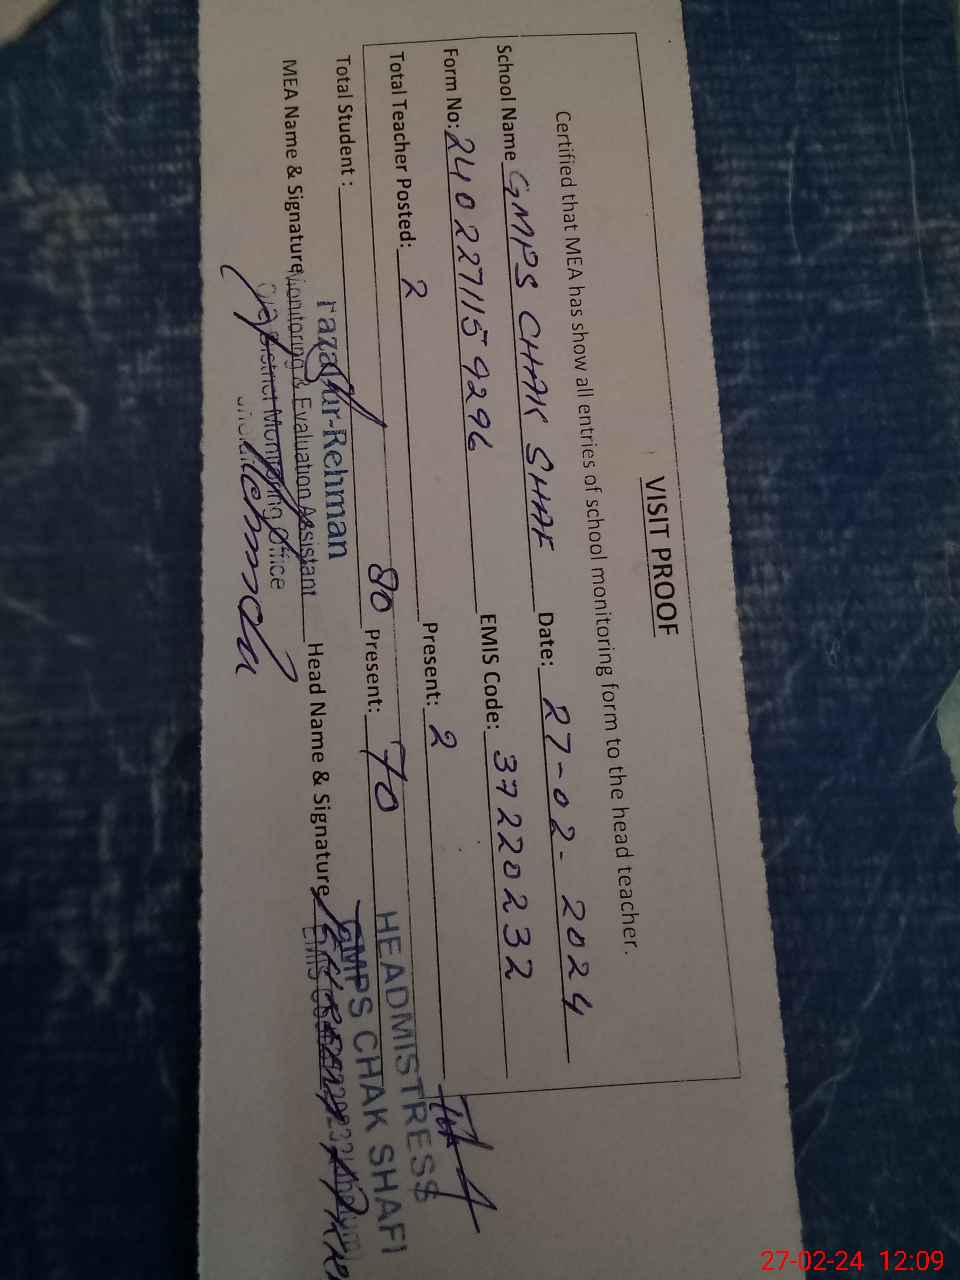 VISIT PROOF
Certified that MEA has show all entries of school monitoring form to the head teacher.
School Name GMPS CHAK SHAF Date: 27-02-2024
Form No: 240227115 9296 EMIS Code: 37220232
Total Teacher Posted: 2 Present: 2
Total Student: 80 Present: 70
HEADMISTRESS
GMPS CHAK SHAFI
-ur-Rehman
MEA Name & Signature Monitoring & Evaluation Assistant Head Name & Signature
District Monitoring Office
27-02-24 12:09